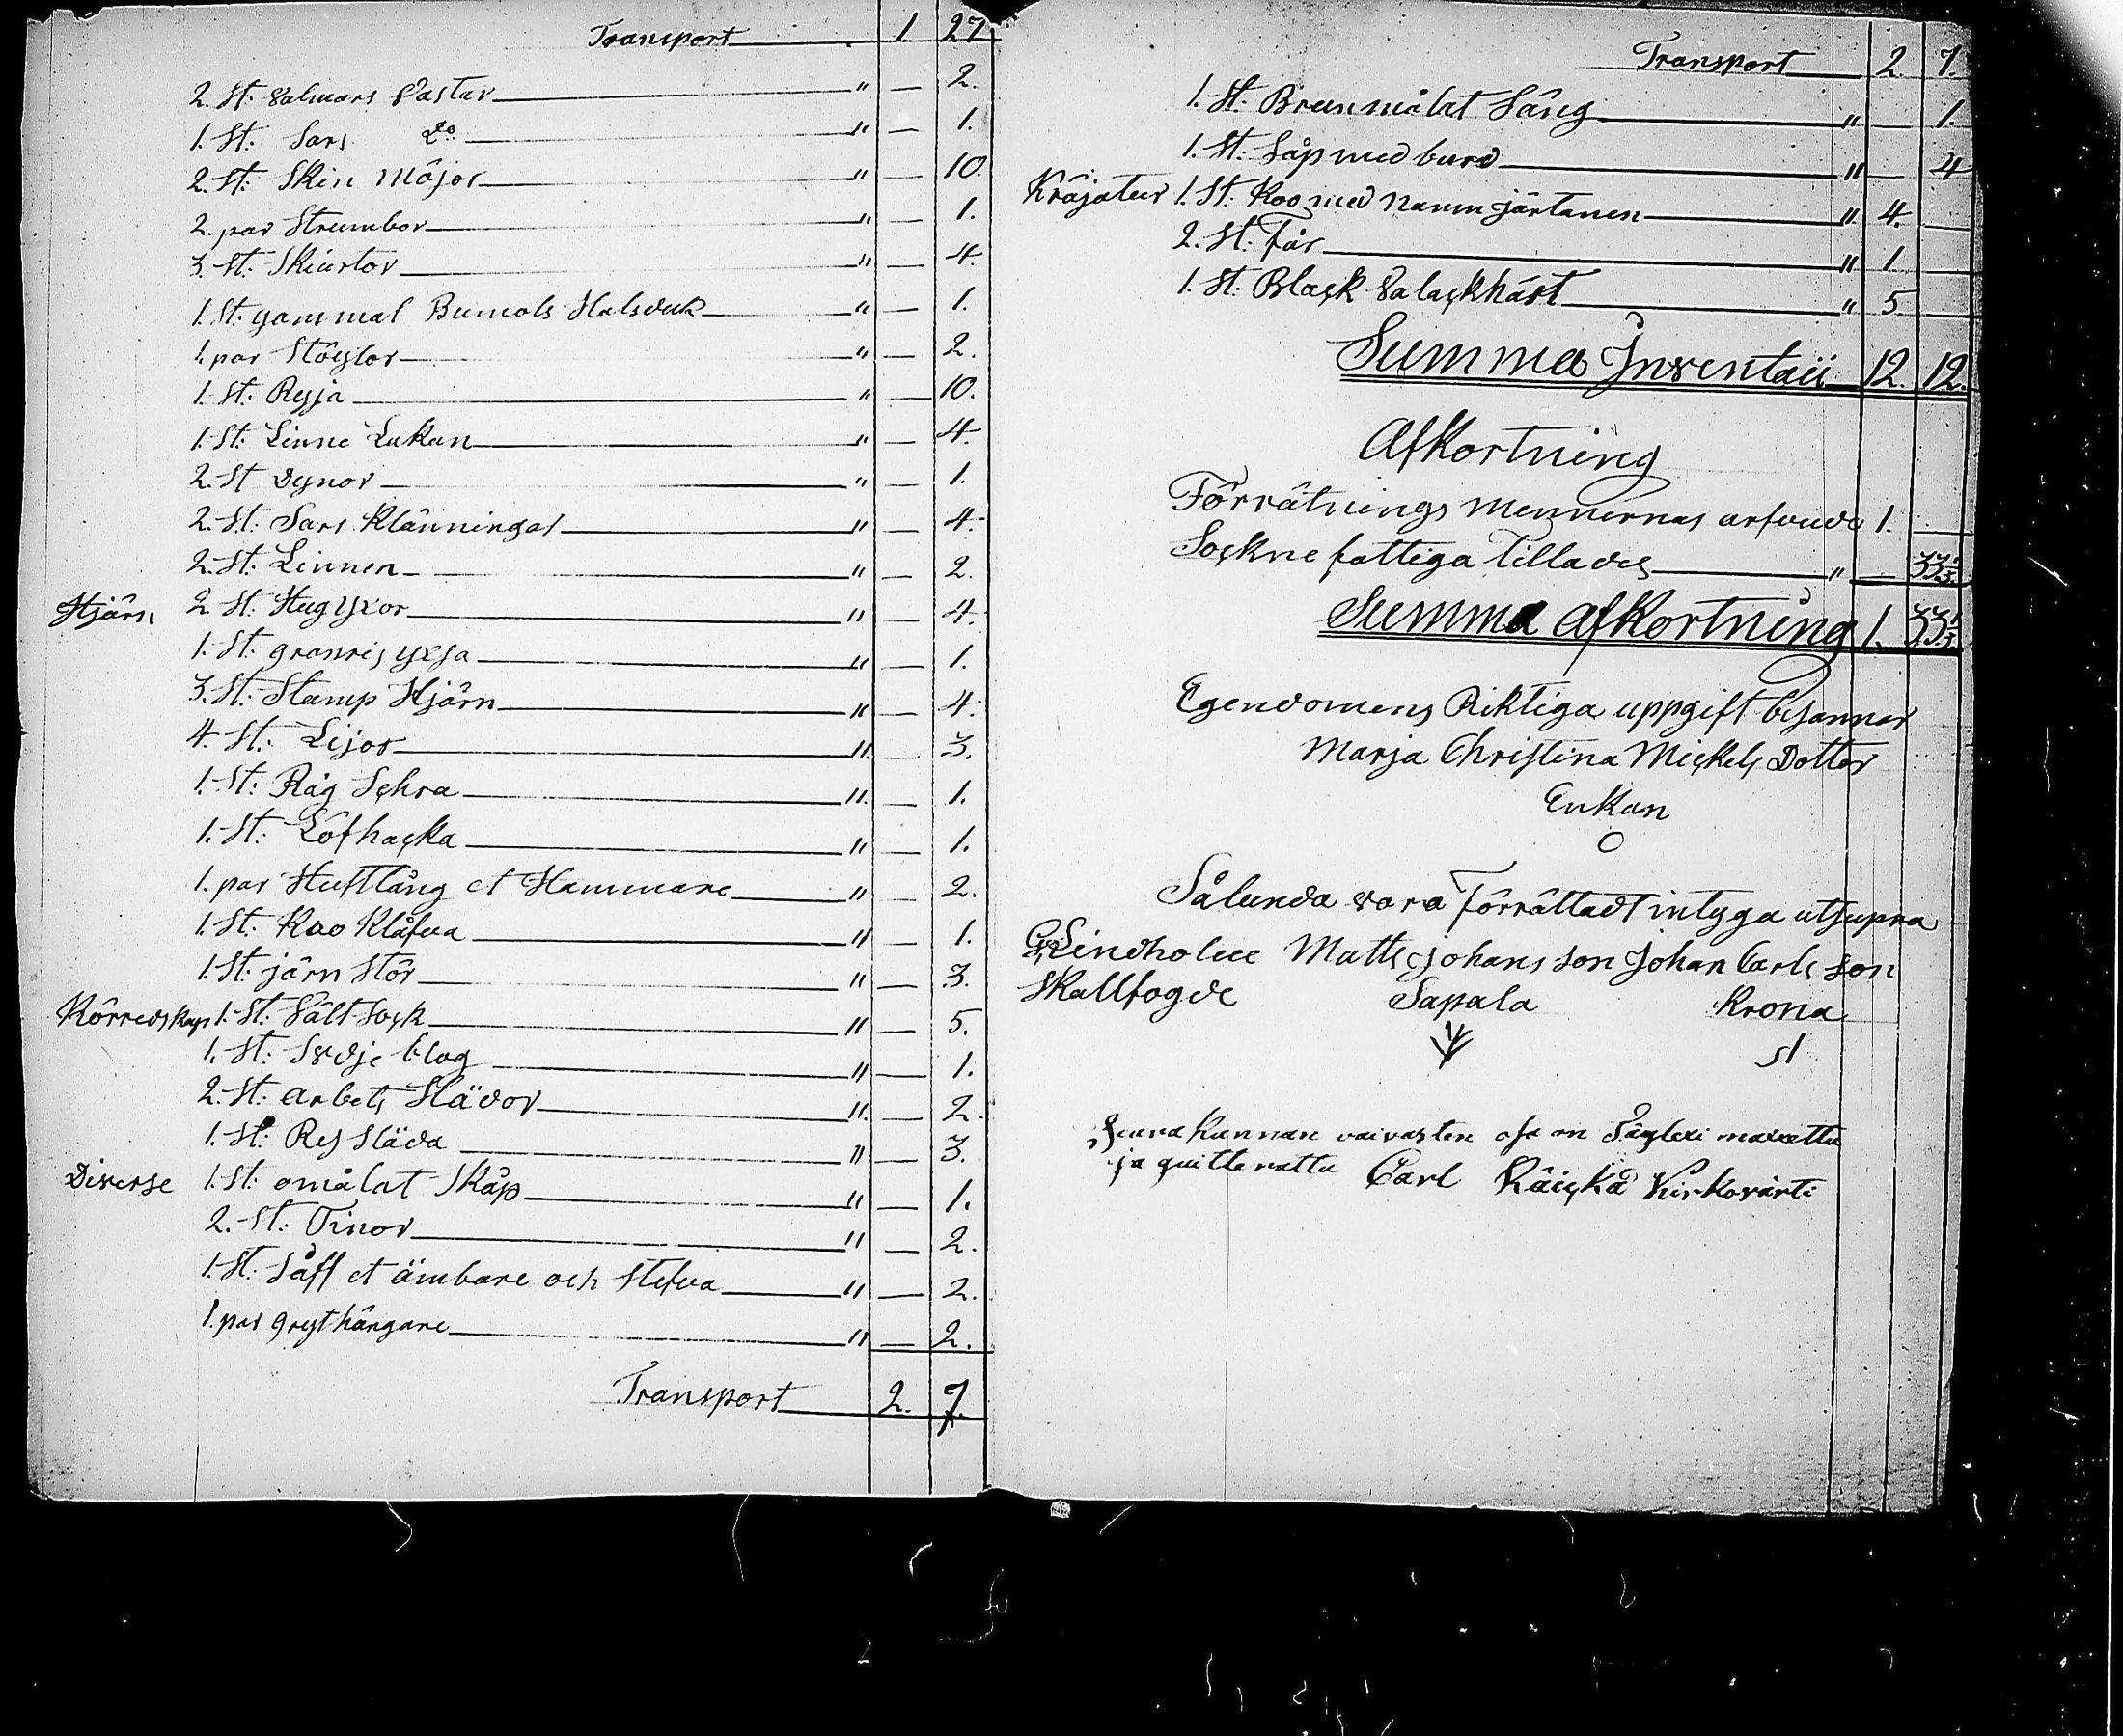 Transport 1 27
2. St: Valmars Västar " — 2.
1. St: Sars Do " — 1.
2. St: Skin Möjor " — 10.
2. par Strumbor " — 1.
3. St: Skiurtor " — 4.
1. St: gammal Bumols Halsduk " — 1.
1. par Stöflor " — 2.
1. St: Ryja " — 10.
1. St: Linne Lakan " — 4.
2. St Dynor " — 1.
2. St: Sars Klänningar " — 4.
2. St: Linnen " — 2.
Hjärn 2 St: Hugyxor " — 4.
1. St: granris yxsa " — 1.
3. St: Stamp Hjärn " — 4.
4. St: Lijor " — 3.
1. St: Råg Schra " — 1.
1. St: Löfhacka " — 1.
1. par Huftång et Hammare " — 2.
1. St: Koo Klåfva " — 1.
1. St: järn Stör " — 3.
Körredskap 1. St: Vält Sock " — 5.
1. St: Svdje blog " — 1.
2. St: arbets Slädor " — 2.
1. St: Res Släda " — 3.
Diverse 1. St: omålat Skåp " — 1.
2. St: Tinor " — 2.
1. St: Såff et ämbare och Stefva " — 2.
1. par grythängare " — 2.
Transport 2. 7.
Transport 2. 7.
1. St: Brunmålat Säng " — 1.
1. St: Såp med burd " — 4
Kräjatur 1. St: Koo med namn järtanen " 4. —
2. St: Får " 1 —
1. St: Black Valackhäst " 5
Summa Inventaii 12. 12.
Afkortning
Förrätnings mennernas arfvude 1. —
Sockne fattiga tillades " — 33⅓
Summa afkortning 1. 33⅓
Egendomens Riktiga uppgift besannar
Marja Christina Mickels Dotter
Enkan
Sålunda vara Förrättadt intyga utsupra
Lindholm Matts Johans son Johan Carls son
Skallfogde Sapala Krona
Seurakunnan vaivasten osa on Täyllexi maxettu
ja quitterattu Carl Räickä Kirkovärti